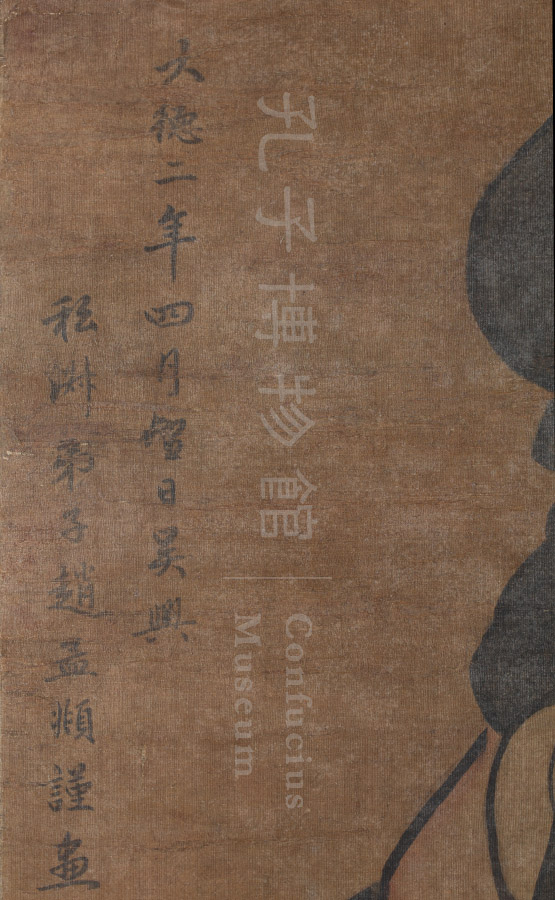 大德二年四月望日吴興
私淑弟子趙孟頫謹畫
孔子博物館
Confucius
Museum